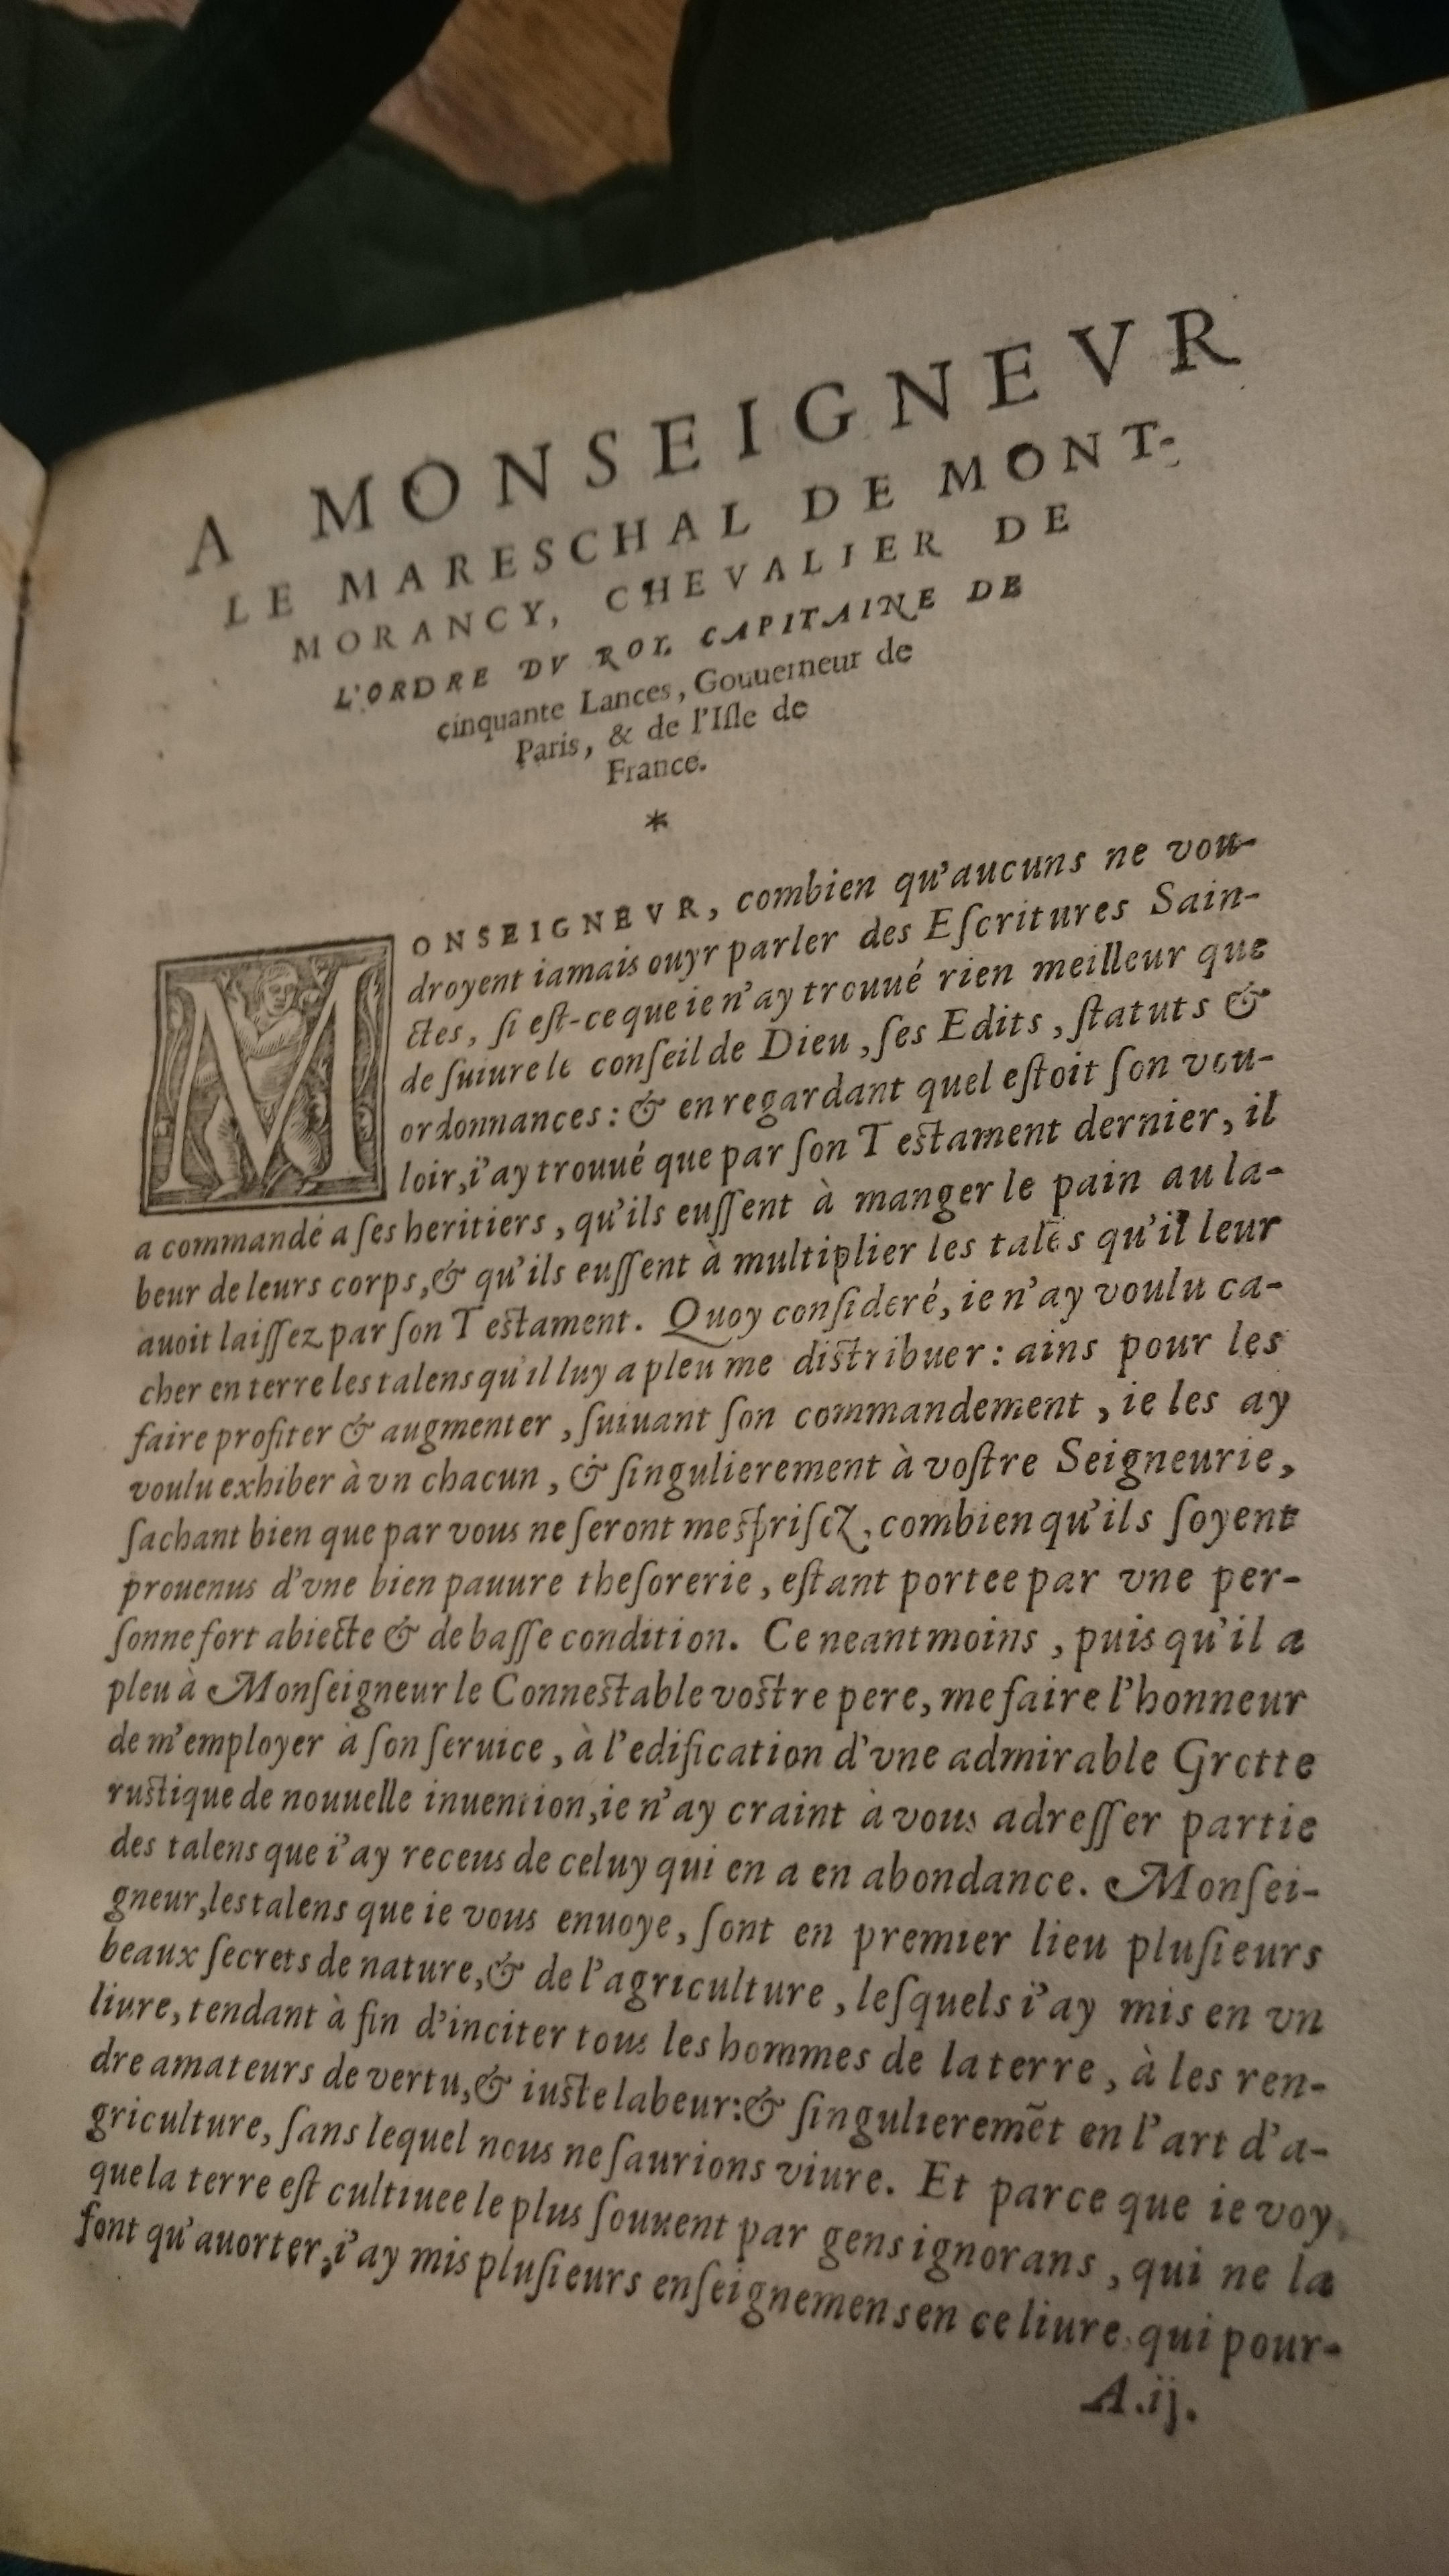 A MONSEIGNEVR
LE MARESCHAL DE MONT-
MORANCY, CHEVALIER DE
L'ORDRE DV ROY, CAPITAINE DE
cinquante Lances, Gouuerneur de
Paris, & de l'Iſle de
France.
*
MONSEIGNEVR, combien qu'aucuns ne vou-
droyent iamais ouyr parler des Eſcritures Sain-
ctes, ſi eſt-ce que ie n'ay trouué rien meilleur que
de ſuiure le conſeil de Dieu, ſes Edits, ſtatuts &
ordonnances: & en regardant quel eſtoit ſon vou-
loir, i'ay trouué que par ſon Teſtament dernier, il
a commandé a ſes heritiers, qu'ils euſſent à manger le pain au la-
beur de leurs corps, & qu'ils euſſent à multiplier les talẽs qu'il leur
auoit laiſſez par ſon Teſtament. Quoy conſideré, ie n'ay voulu ca-
cher en terre les talens qu'il luy a pleu me diſtribuer: ains pour les
faire profiter & augmenter, ſuiuant ſon commandement, ie les ay
voulu exhiber à vn chacun, & ſingulierement à voſtre Seigneurie,
ſachant bien que par vous ne ſeront meſpriſez, combien qu'ils ſoyent
prouenus d'vne bien pauure theſorerie, eſtant portee par vne per-
ſonne fort abiecte & de baſſe condition. Ce neantmoins, puis qu'il a
pleu à Monſeigneur le Conneſtable voſtre pere, me faire l'honneur
de m'employer à ſon ſeruice, à l'edification d'vne admirable Grotte
ruſtique de nouuelle inuention, ie n'ay craint à vous adreſſer partie
des talens que i'ay receus de celuy qui en a en abondance. Monſei-
gneur, les talens que ie vous enuoye, ſont en premier lieu pluſieurs
beaux ſecrets de nature, & de l'agriculture, leſquels i'ay mis en vn
liure, tendant à fin d'inciter tous les hommes de la terre, à les ren-
dre amateurs de vertu, & iuſte labeur: & ſingulieremẽt en l'art d'a-
griculture, ſans lequel nous ne ſaurions viure. Et parce que ie voy
que la terre eſt cultiuee le plus ſouuent par gens ignorans, qui ne la
font qu'auorter, i'ay mis pluſieurs enſeignemens en ce liure, qui pour-
A.ij.